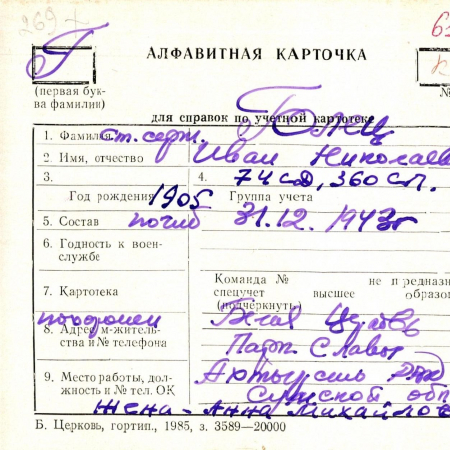 269 +
Г
(первая бук-
ва фамилии)
АЛФАВИТНАЯ КАРТОЧКА
№
для справок по учетной картотеке
1. Фамилия Ст. серж.
2. Имя, отчество Иван Николаев
3. 4. 74 сд, 360 сп.
Год рождения 1905 Группа учета
5. Состав погиб 31.12.1943г
6. Годность к воен-
службе
Команда № не предназн
7. Картотека спецучет высшее образо
(подчеркнуть)
похоронен
8. Адрес м-житель-
ства и № телефона
Парк Славы
9. Место работы, дол-
жность и № тел. ОК
Сумской обл
жена - Анна Михайлов
Б. Церковь, гортип., 1985, з. 3589—20000